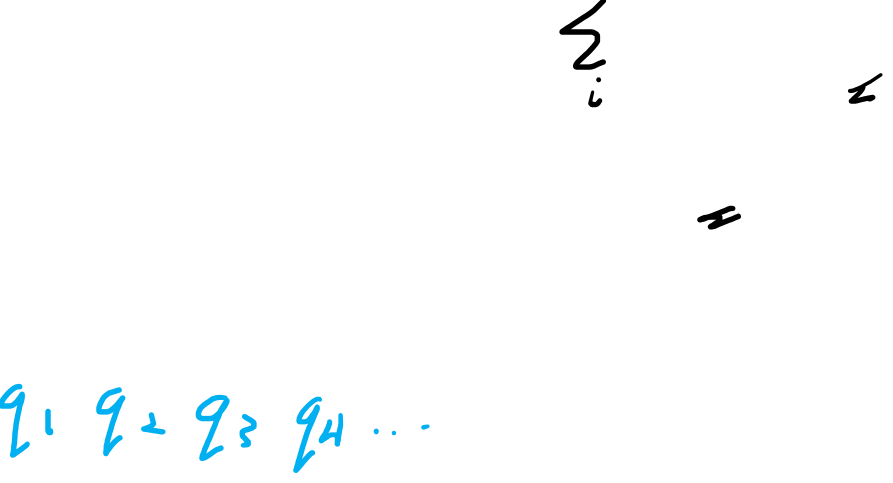 Σ
i
=
q1 q2 q3 q4 ...